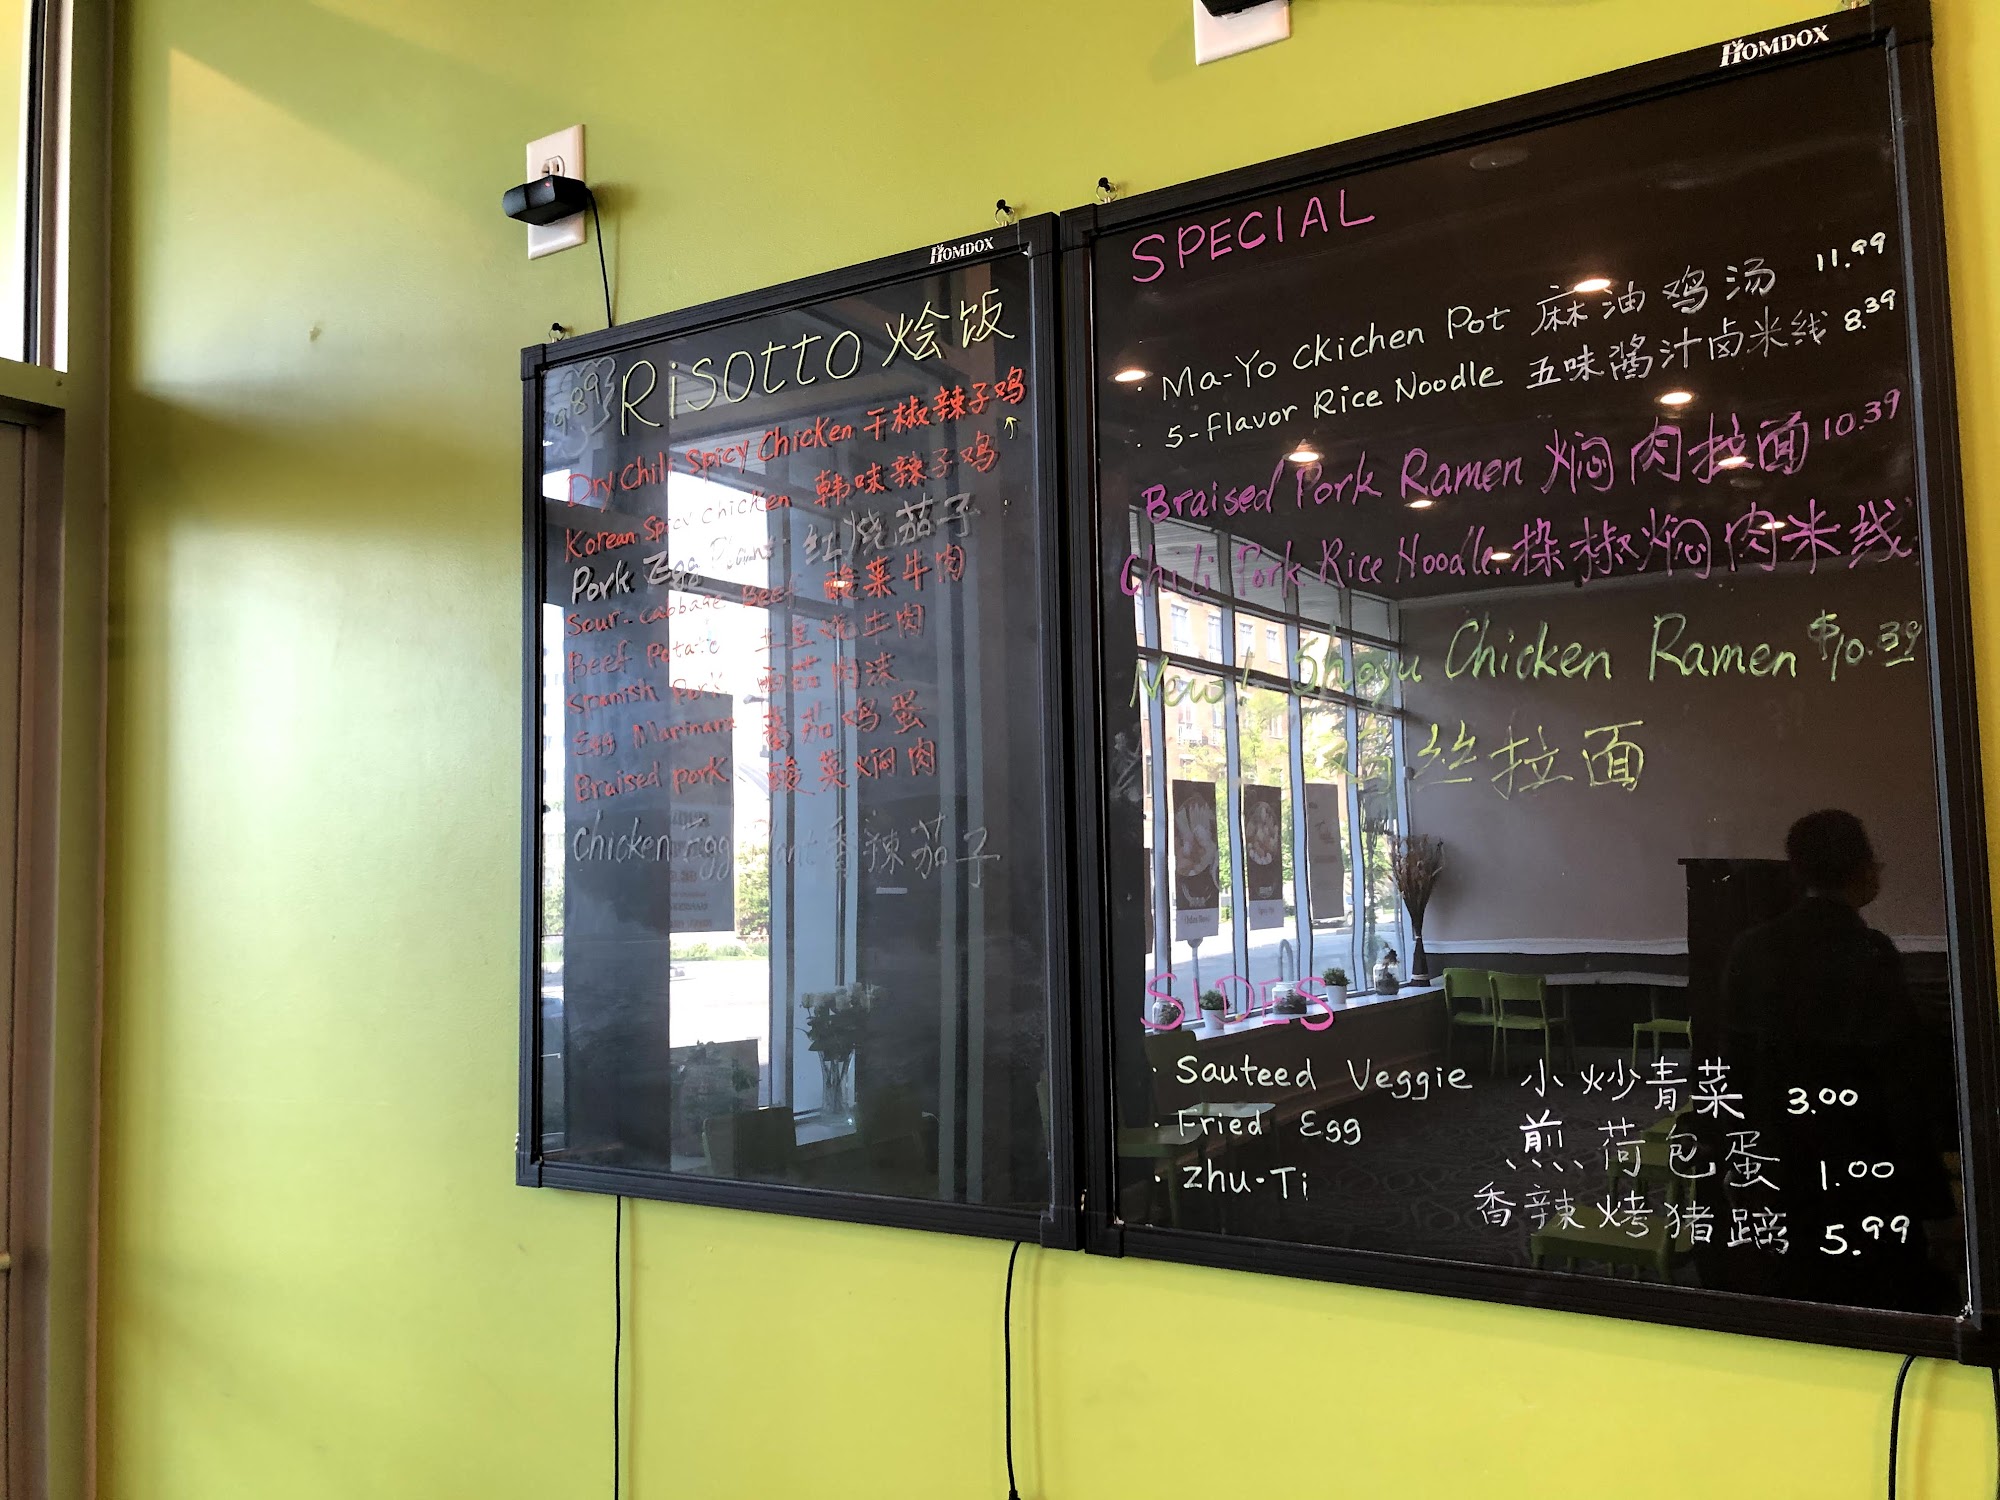 HOMDOX
9.89 Risotto 烩饭
Dry Chili Spicy Chicken 干椒辣子鸡
Korean Spicy chicken 韩味辣子鸡
Pork Egg Plant 红烧茄子
Sour-cabbage Beef 酸菜牛肉
Beef Potato 土豆烧牛肉
Spanish Pork
Egg Marinara 番茄鸡蛋
Braised pork 酸菜焖肉
Chicken Egg Plant 香辣茄子
HOMDOX
SPECIAL
· Ma-Yo Ckichen Pot 麻油鸡汤 11.99
· 5-Flavor Rice Noodle 五味酱汁卤米线 8.39
Braised Pork Ramen 焖肉拉面 10.39
Chili Pork Rice Noodle. 椒焖肉米线
New! Shoyu Chicken Ramen $10.39
鸡丝拉面
SIDES
· Sauteed Veggie 小炒青菜 3.00
· Fried Egg 煎荷包蛋 1.00
· Zhu-Ti 香辣烤猪蹄 5.99